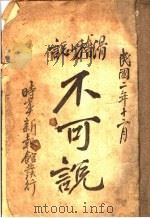 滑稽小說
民國二年十二月
不可說
時事新報館發行